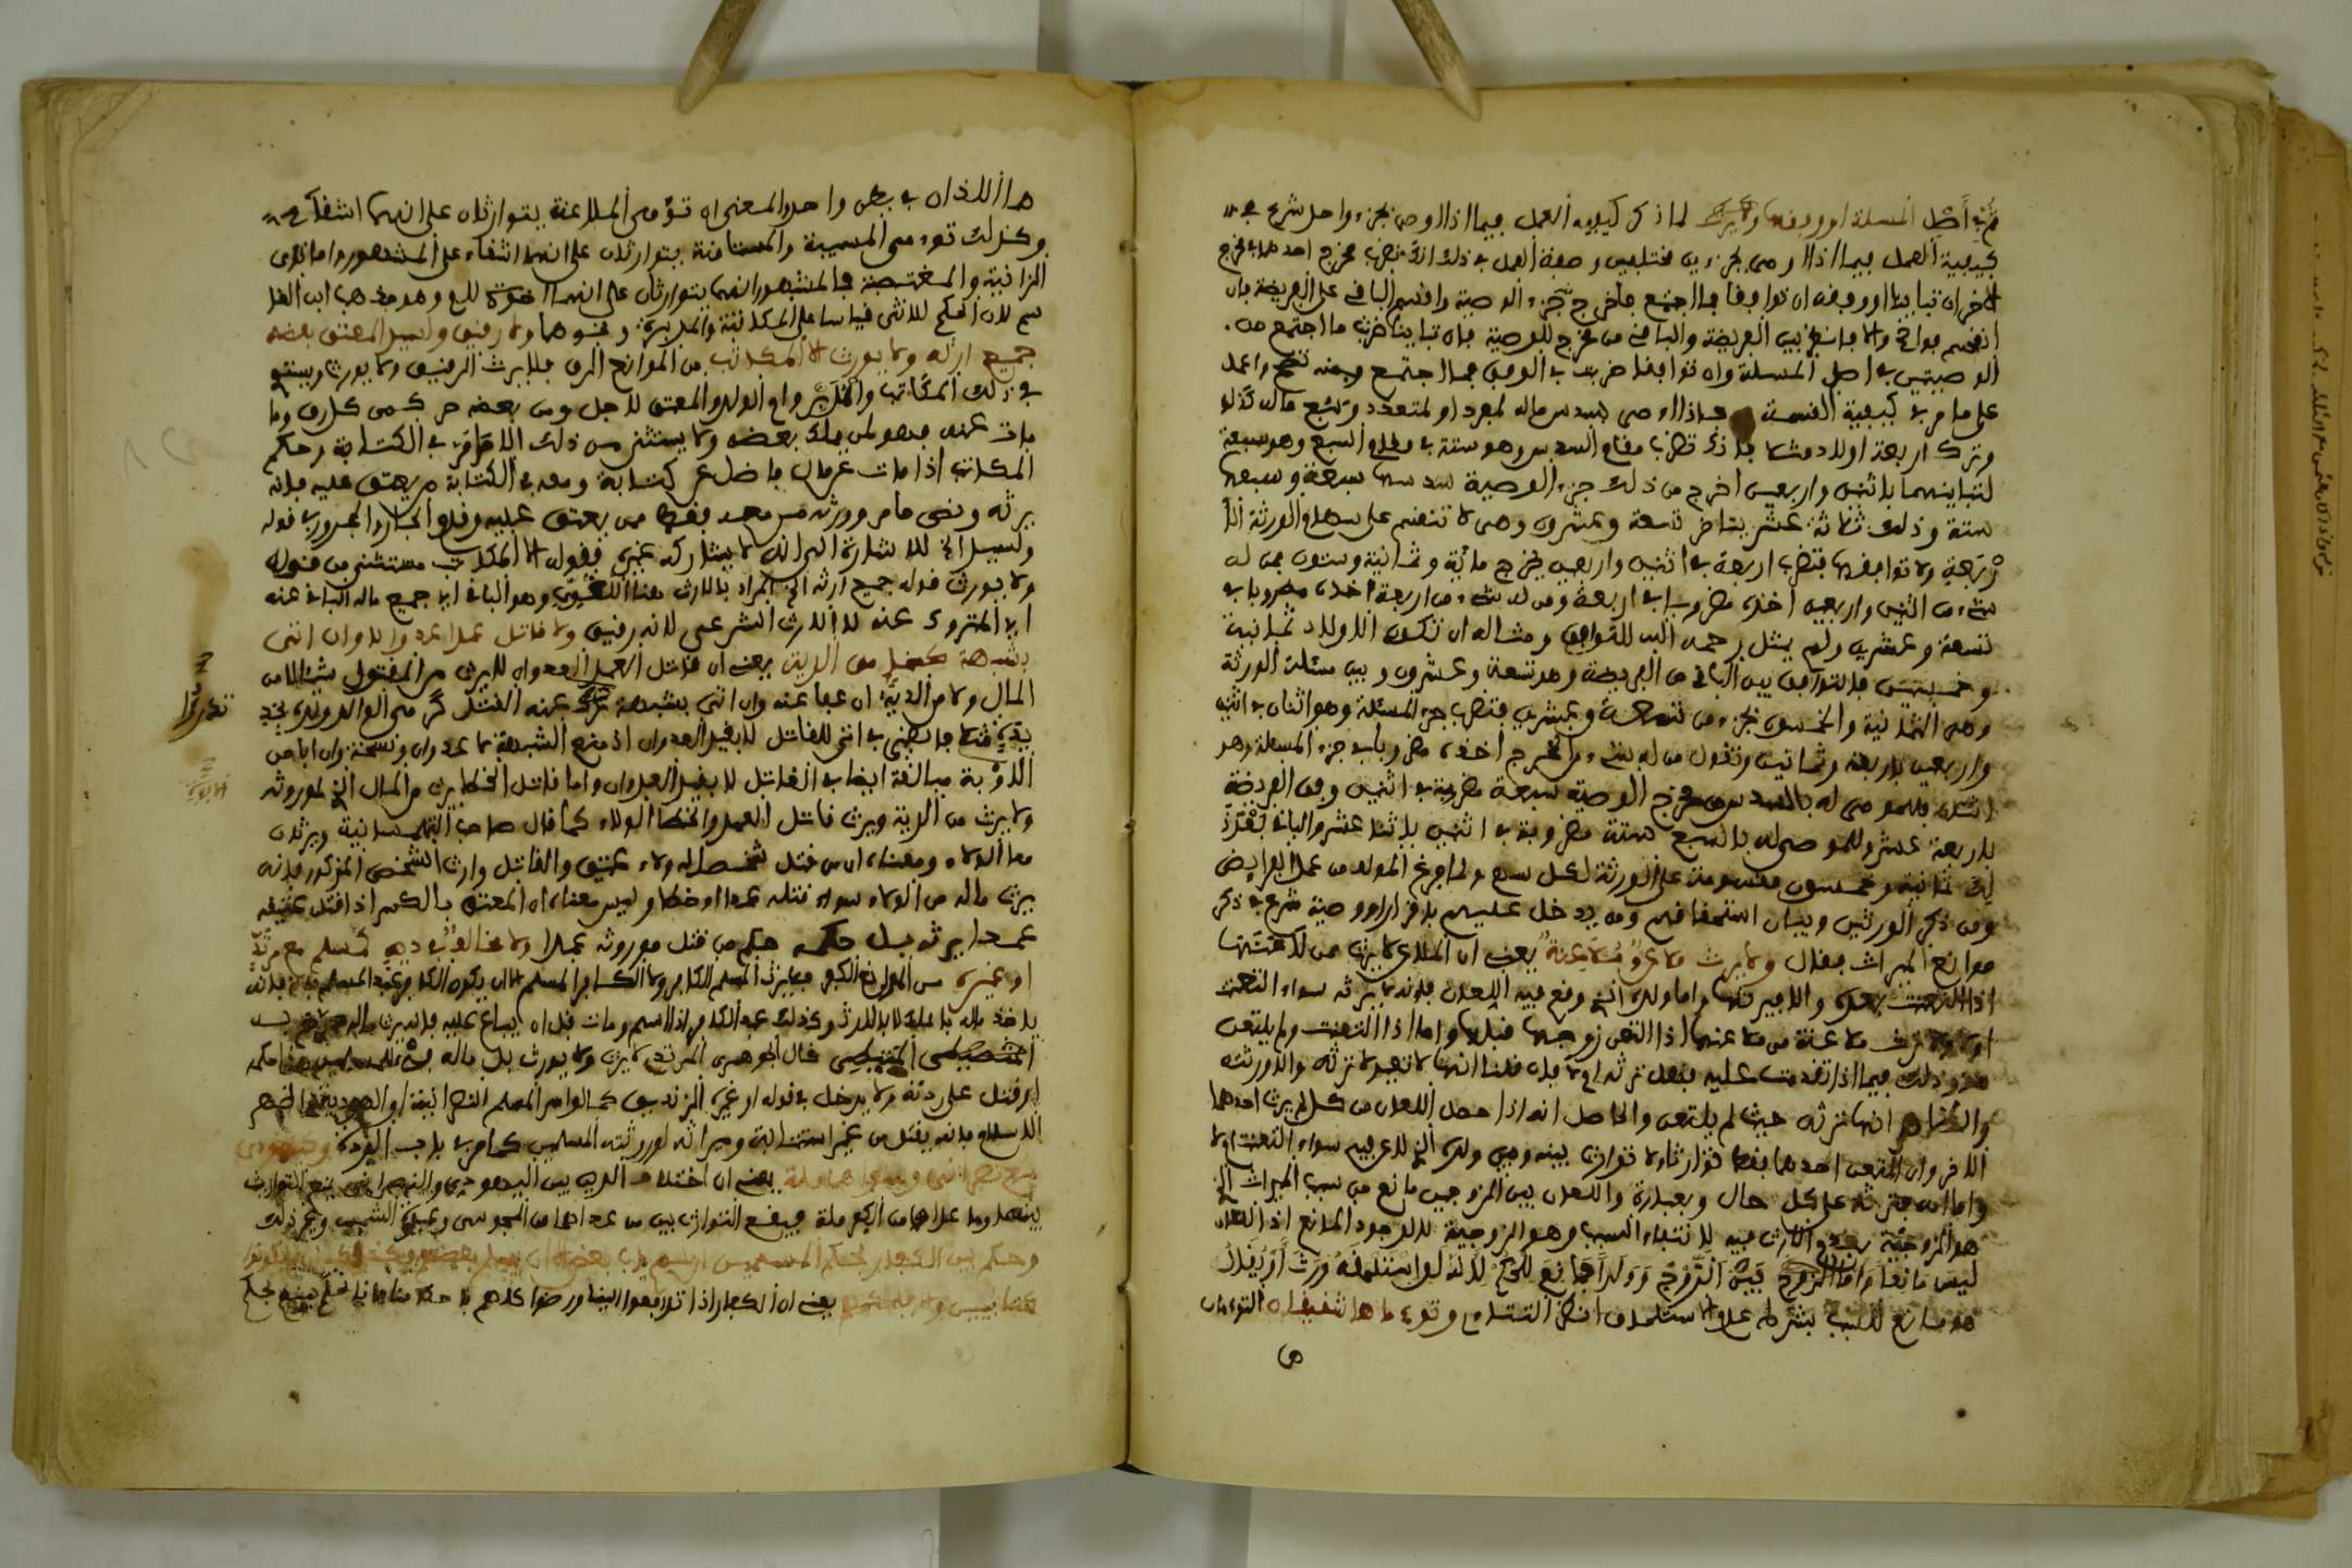 ثم في أصل المسئلة او وفقها لما ذكر كيفية العمل فيما اذا اوصى بجزء واحد شرع في
كيفية العمل فيما اذا اوصى بجزءين مختلفين وصفة العمل في ذلك انك تضرب مخرج احدهما في مخرج
الاخر ان تباينا او وفقه ان توافقا فما اجتمع فاخرج جزء الوصية واقسم الباقي على الفريضة فان
انقسم فواضح والا فانظر بين الفريضة والباقي من مخرج الوصية فان تباينا ضربت ما اجتمع من
الوصيتين في اصل المسئلة وان توافقا ضربت في الوفق فما اجتمع فمنه تصح واعمل
على ما مر في كيفية القسمة فاذا اوصى بسدس ماله لمفرد او لمتعدد وبسبع ماله كذلك
وترك اربعة اولاد مثلا فلذلك تضرب مقام السدس وهو ستة في مقام السبع وهو سبعة
لتباينهما باثنين واربعين اخرج من ذلك جزء الوصية سدسها سبعة وسبعها
ستة وذلك ثلاثة عشر يتاخر تسعة وعشرون وهي لا تنقسم على سهام الورثة
اربعة ولا توافقها فتضرب اربعة في اثنين واربعين يخرج مائة وثمانية وستون فمن له
شيء من اثنين واربعين اخذه مضروبا في اربعة ومن له شيء من اربعة اخذه مضروبا في
تسعة وعشرين ولم يمثل رحمه الله للتوافق ومثاله ان تكون الاولاد ثمانية
وخمسين فالتوافق بين الباقي من الفريضة وهو تسعة وعشرون وبين مسئلة الورثة
وهي الثمانية والخمسون بجزء من تسعة وعشرين فتضرب جزء المسئلة وهو اثنان في اثنين
واربعين باربعة وثمانين وتقول من له شيء من المخرج اخذه مضروبا في جزء المسئلة وهو
اثنان فللموصى له بالسدس من مخرج الوصية سبعة مضروبة في اثنين وفق الفريضة
باربعة عشر وللموصى له بالسبع ستة مضروبة في اثنين باثنا عشر والباقي
ثمانية وخمسون مقسومة على الورثة لكل سهم ولما فرغ المولف من عمل الفرايض
ومن ذكر الوارثين وبيان استحقاقهم ومن يدخل عليهم باقرار او وصية شرع في ذكر
موانع الميراث فقال ولا يرث ملاعن وملاعنة يعني ان الملاعن لا يرث من لاعنها
اذا التعنت بعده والا فيرثها واما ولده الذي وقع فيه اللعان فانه لا يرثه سواء التعنت
او لا ولا ترث ملاعنة من ملاعنها اذا التعن زوجها قبلها واما اذا التعنت ولم يلتعن
هو وذلك فيما اذا تقدمت عليه فهل ترثه ام لا فان قلنا انها لا تعيد لا ترثه والا ورثته
والظاهر انها ترثه حيث لم يلتعن والحاصل انه اذا حصل اللعان من كل لم يرث احدهما
الاخر وان التعن احدهما فقط توارثا ولا توارث بينه وبين ولده الذي لاعن فيه سواء التعنت ام لا
واما امه فترثه على كل حال وبعبارة واللعان بين الزوجين مانع من سبب الميراث الذي
هو الزوجية بعدم الارث فيه لانتفاء السبب وهو الزوجية لا لوجود المانع اذ اللعان
ليس مانعا واما الزوج بين الزوج وولده فمانع للحكم لانه لو استلحقه ورث او يقال
هو مانع للسبب بشرط عدم الاستلحاق انظر التتاءي وتوءماها شقيقان التوءمان
هما اللذان في بطن واحد والمعنى ان توءمي الملاعنة يتوارثان على انهما اشقاء
وكذلك توءمي المسبية والمستامنة يتوارثان على انهما اشقاء على المشهور واما توءما
الزانية والمغتصبة فالمشهور انهما يتوارثان على انهما اخوة للام وهو مذهب ابن القا
سم لان الحكم للانثى قياسا على المكاتبة والمدبرة ونحوهما ولا رقيق ولسيد المعتق بعضه
جميع ارثه ولا يورث الا المكاتب من الموانع الرق فلا يرث الرقيق ولا يورث ويستوي
في ذلك المكاتب والمدبر وام الولد والمعتق لاجل ومن بعضه حر كمن كله رق وما
مات عنه فهو لمن يملك بعضه ولا يستثنى من ذلك الا ما مر في الكتابة وحكم
المكاتب اذا مات عن مال فاضل عن كتابة ومعه في الكتابة من يعتق عليه فانه
يرثه ونص ما مر وورثه من معه فقط ممن يعتق عليه وقدم الجار والمجرور في قوله
ولسيد الخ للاشارة الى انه لا يشاركه غيره فقوله الا المكاتب مستثنى من قوله
ولا يورث قوله جميع ارثه الخ المراد بالارث هنا اللغوي وهو الباقي اي جميع ماله الباقي عنه
اي المتروك عنه لا الارث الشرعي لانه رقيق ولا قاتل عمدا عدوانا وان اتى
بشبهة كمخطئ من الدية يعني ان قاتل العمد العدوان لا يرث من المقتول شيئا لا من
المال ولا من الدية ان عفا عنه وان اتى بشبهة تدرا عنه القتل كرمي الوالد ولده بحد
يد
الابوة مبالغة ايضا في القاتل لا بقيد العدوان واما قاتل الخطا يرث من المال الذي لموروثه
ولا يرث من الدية ويرث قاتل العمد والخطا الولاء كما قال صاحب التلمسانية ويرثان
معا الولاء ومعناه ان من قتل شخصا له ولاء عتيق والقاتل وارث الشخص المذكور فانه
يرث ماله من الولاء سواء قتله عمدا او خطا وليس معناه ان المعتق بالكسر اذا قتل عتيقه
عمدا يرثه بل حكمه حكم من قتل موروثه عمدا ولا مخالف في دين كمسلم مع مرتد
او غيره من الموانع الكفر فلا يرث المسلم الكافر ولا الكافر المسلم الا ان يكون الكافر عبد المسلم فانه
ياخذ ماله بالملك لا بالارث وكذلك عبد الكافر اذا اسلم ومات قبل ان يباع عليه فانه يرث ماله
قال الجوهري المرتد لا يرث ولا يورث بل ماله حكمه
لو قتل على ردته ولا يدخل في قوله او غيره الزنديق كما لو اسر المسلم النصرانية او اليهودية
الاسلام فانه يقتل من غير استتابة وميراثه لورثته المسلمين كما مر في باب الردة وكيهودي
مع نصراني وسواهما ملة يعني ان اختلاف الدين بين اليهودي والنصراني يمنع التوارث
بينهما وما عداهما من الكفر ملة فيقع التوارث بين من عداهما من المجوسي وعبدة الشمس وغير ذلك
وحكم بين الكفار بحكم المسلمين ان لم ياب بعض الا ان يسلم بعضهم
يعني ان الكفار اذا ترافعوا الينا ورضوا كلهم باحكامنا فانا نحكم بينهم بحكم
تدرا